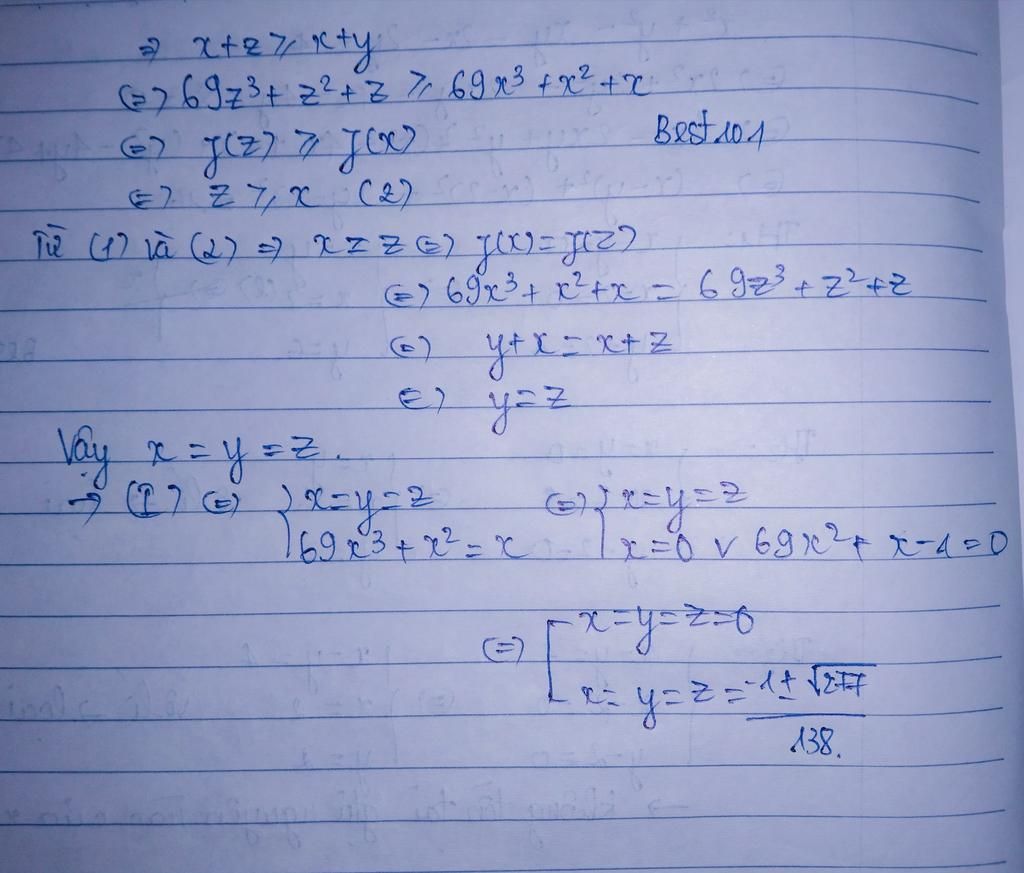 ⇒ x+z ≥ x+y
⇔ 69z³ + z² + z ≥ 69x³ + x² + x
⇔ f(z) ≥ f(x) Best101
⇔ z ≥ x (2)
Từ (1) và (2) ⇒ x = z ⇔ f(x) = f(z)
⇔ 69x³ + x² + x = 69z³ + z² + z
⇔ y+x = x+z
⇔ y = z
Vậy x = y = z.
→ (I) ⇔ { x = y = z ⇔ { x = y = z
69x³ + x² = x x = 0 ∨ 69x² + x - 1 = 0
⇔ [ x = y = z = 0
x = y = z = (-1 ± √277)/138.